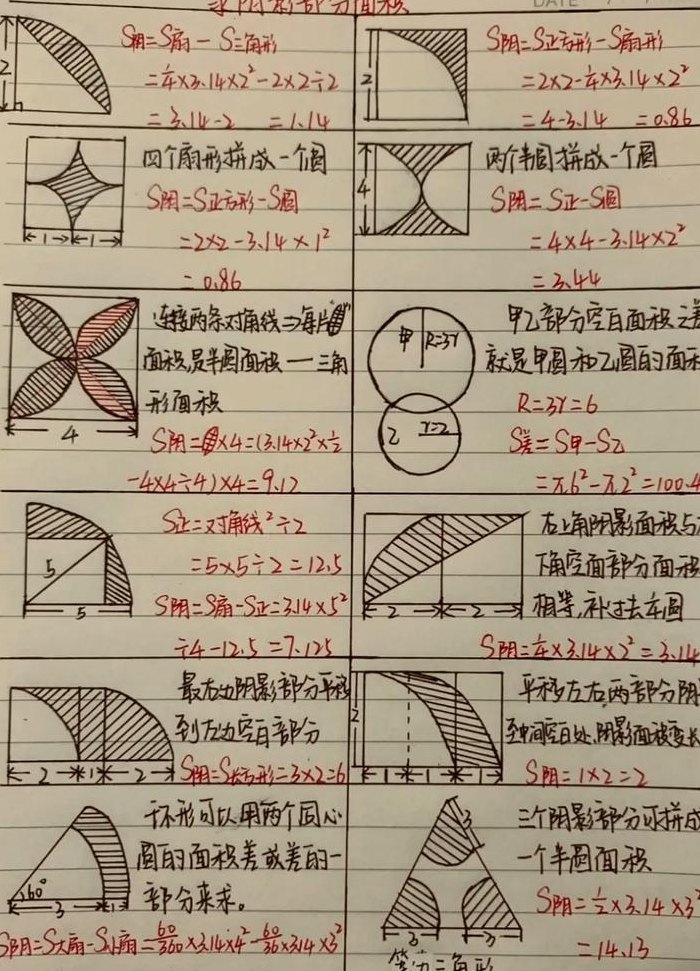 求阴影部分面积
DATE
2
S阴=S扇-S三角形
=1/4×3.14×2²-2×2÷2
=3.14-2 =1.14
2
S阴=S正方形-S扇形
=2×2-1/4×3.14×2²
=4-3.14 =0.86
四个扇形拼成一个圆
S阴=S正方形-S圆
=2×2-3.14×1²
=0.86
1 1
两个半圆拼成一个圆
4
S阴=S正-S圆
=4×4-3.14×2²
=3.44
连接两条对角线⇒每片
面积,是半圆面积一三角
形面积
4
S阴= ×4=(3.14×2²×1/2
-4×4÷4)×4=9.12
甲乙部分空白面积之差
甲 R=3r
就是甲圆和乙圆的面积
R=3r=6
乙 r=2
S差=S甲-S乙
=π6²-π2²=100.4
S正=对角线²÷2
5
=5×5÷2=12.5
5
S阴=S扇-S正=3.14×5²
÷4-12.5=7.125
右上角阴影面积与
下角空面部分面积
2 2
相等,补过去
S阴=1/4×3.14×2²=3.14
最右边阴影部分平移
到左边空白部分
2 1 2
S阴=S长方形=3×2=6
平移左右两部分阴
2
至中间空白处,阴影面积变长
1 1 1
S阴=1×2=2
环形可以用两个同心
圆的面积差或差的一
部分来求。
60°
3 1
S阴=S大扇-S小扇=60/360×3.14×4²-60/36×3.14×3²
三个阴影部分可拼成
3
一个半圆面积
S阴=1/2×3.14×3²
3 3
=14.13
等边三角形